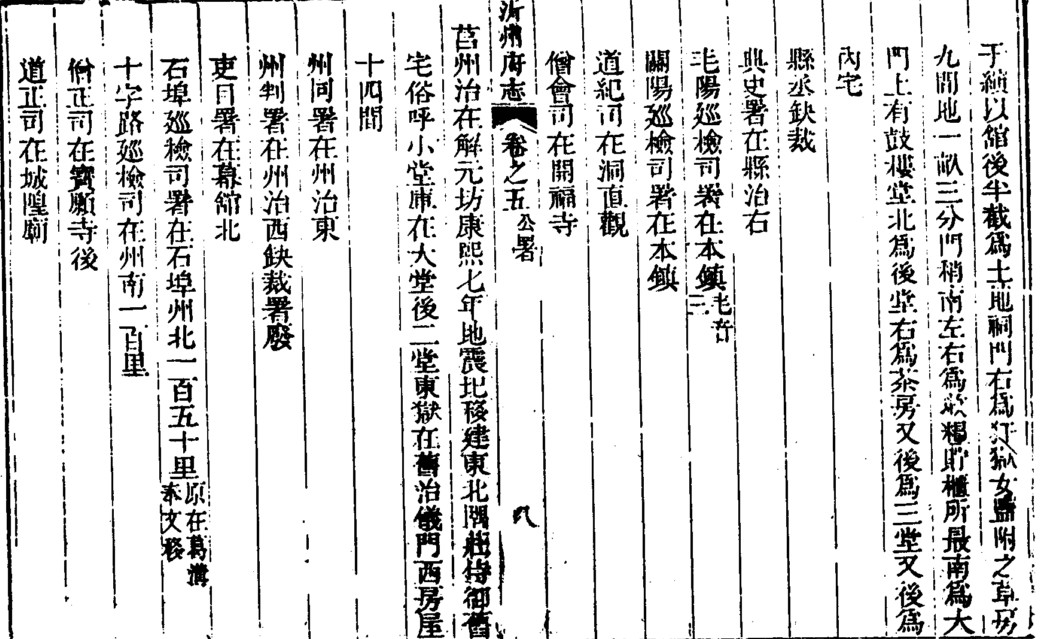 于縯以舘後半截爲土地祠門右爲犴獄女監附之草房
九間地一畝三分門稍南左右爲歛糧貯櫃所最南爲大
門上有鼓樓堂北爲後堂右爲茶房又後爲三堂又後爲
內宅
縣丞缺裁
典史署在縣治右
毛陽廵檢司署在本鎮毛音
關陽廵檢司署在本鎮
道紀司在洞直觀
僧會司在開福寺
沂州府志 卷之五 公署 八
莒州治在解元坊康熙七年地震圮移建東北隅杜侍御舊
宅俗呼小堂庫在大堂後二堂東獄在舊治儀門西房屋
十四間
州同署在州治東
州判署在州治西缺裁署廢
吏目署在幕舘北
石埠廵檢司署在石埠州北一百五十里原在葛溝
奉文移
十字路廵檢司在州南一百里
僧正司在寶願寺後
道正司在城隍廟